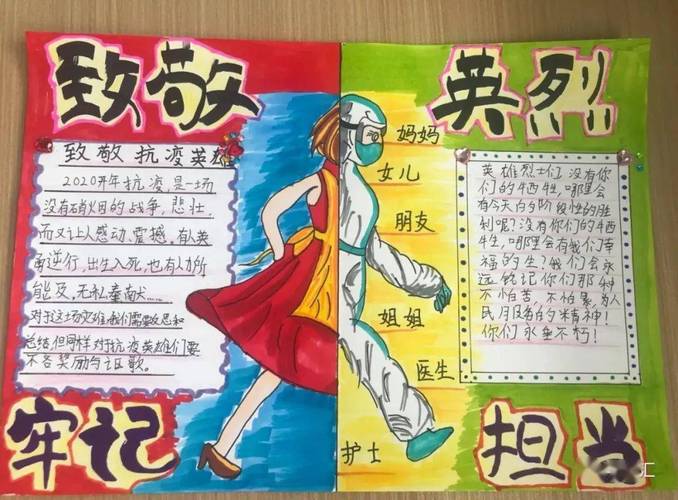 致敬
英烈
致敬抗疫英雄
2020开年抗疫是一场
没有硝烟的战争,悲壮
而又让人感动、震撼,有人英
勇逆行,出生入死,也有人力所
能及,无私奉献……
对于这场灾难,我们需要反思和
总结,但同样对抗疫英雄们要
不吝奖励与讴歌。
牢记
妈妈
女儿
朋友
姐姐
医生
护士
英雄烈士们,没有你
们的牺牲,哪里会
有今天的阶段性的胜
利呢?没有你们的牺
牲,哪里会有我们幸
福的生?我们会永
远铭记你们那种
不怕苦,不怕累,为人
民服务的精神!
你们永垂不朽!
担当
汇